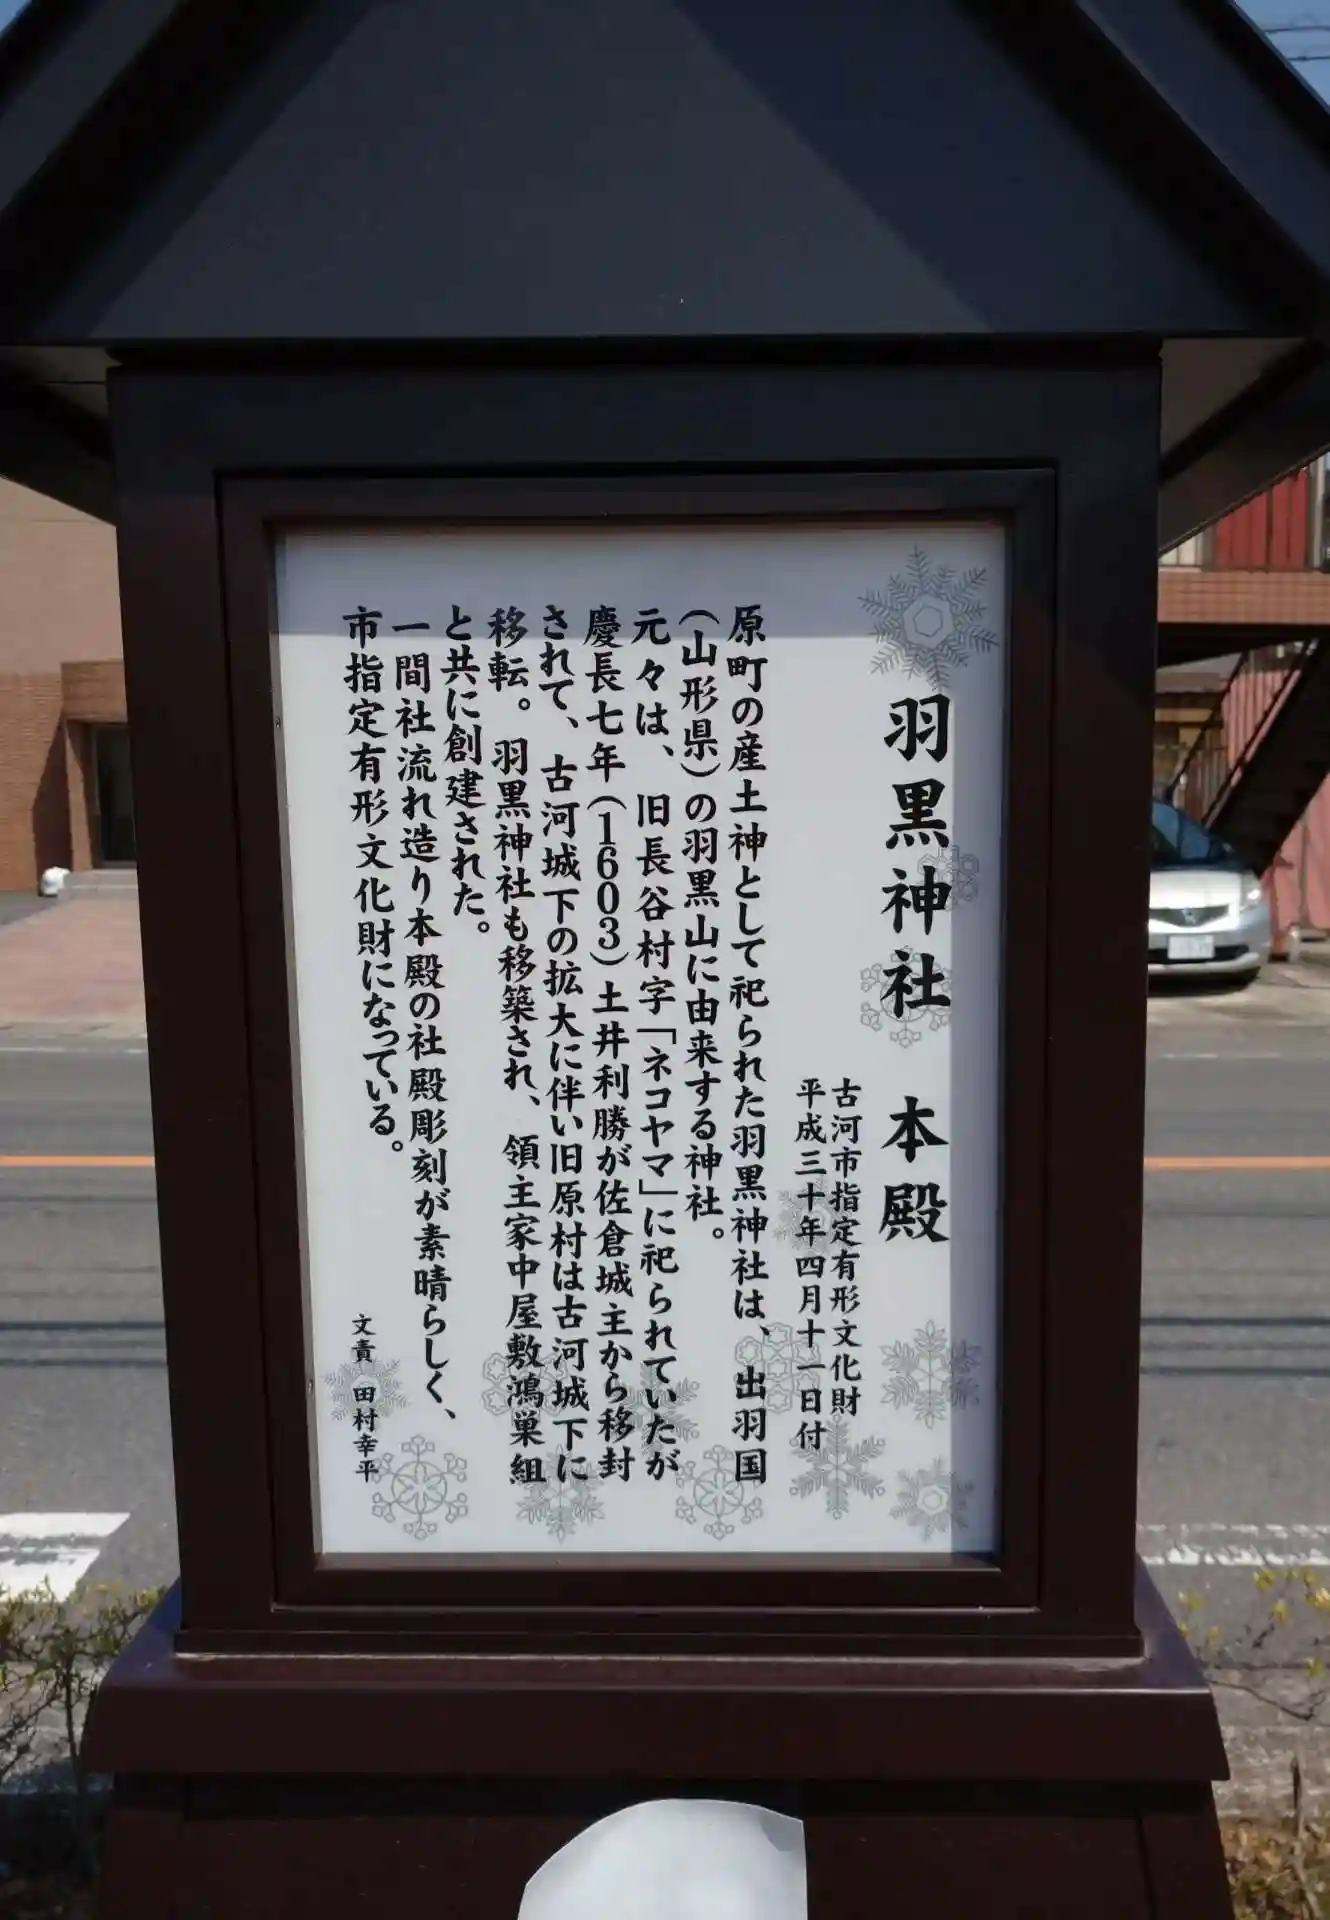 羽黒神社 本殿
古河市指定有形文化財
平成三十年四月十一日付
原町の産土神として祀られた羽黒神社は、出羽国
（山形県）の羽黒山に由来する神社。
元々は、旧長谷村字「ネコヤマ」に祀られていたが
慶長七年（1603）土井利勝が佐倉城主から移封
されて、古河城下の拡大に伴い旧原村は古河城下に
移転。羽黒神社も移築され、領主家中屋敷鴻巣組
と共に創建された。
一間社流れ造り本殿の社殿彫刻が素晴らしく、
市指定有形文化財になっている。
文責 田村幸平